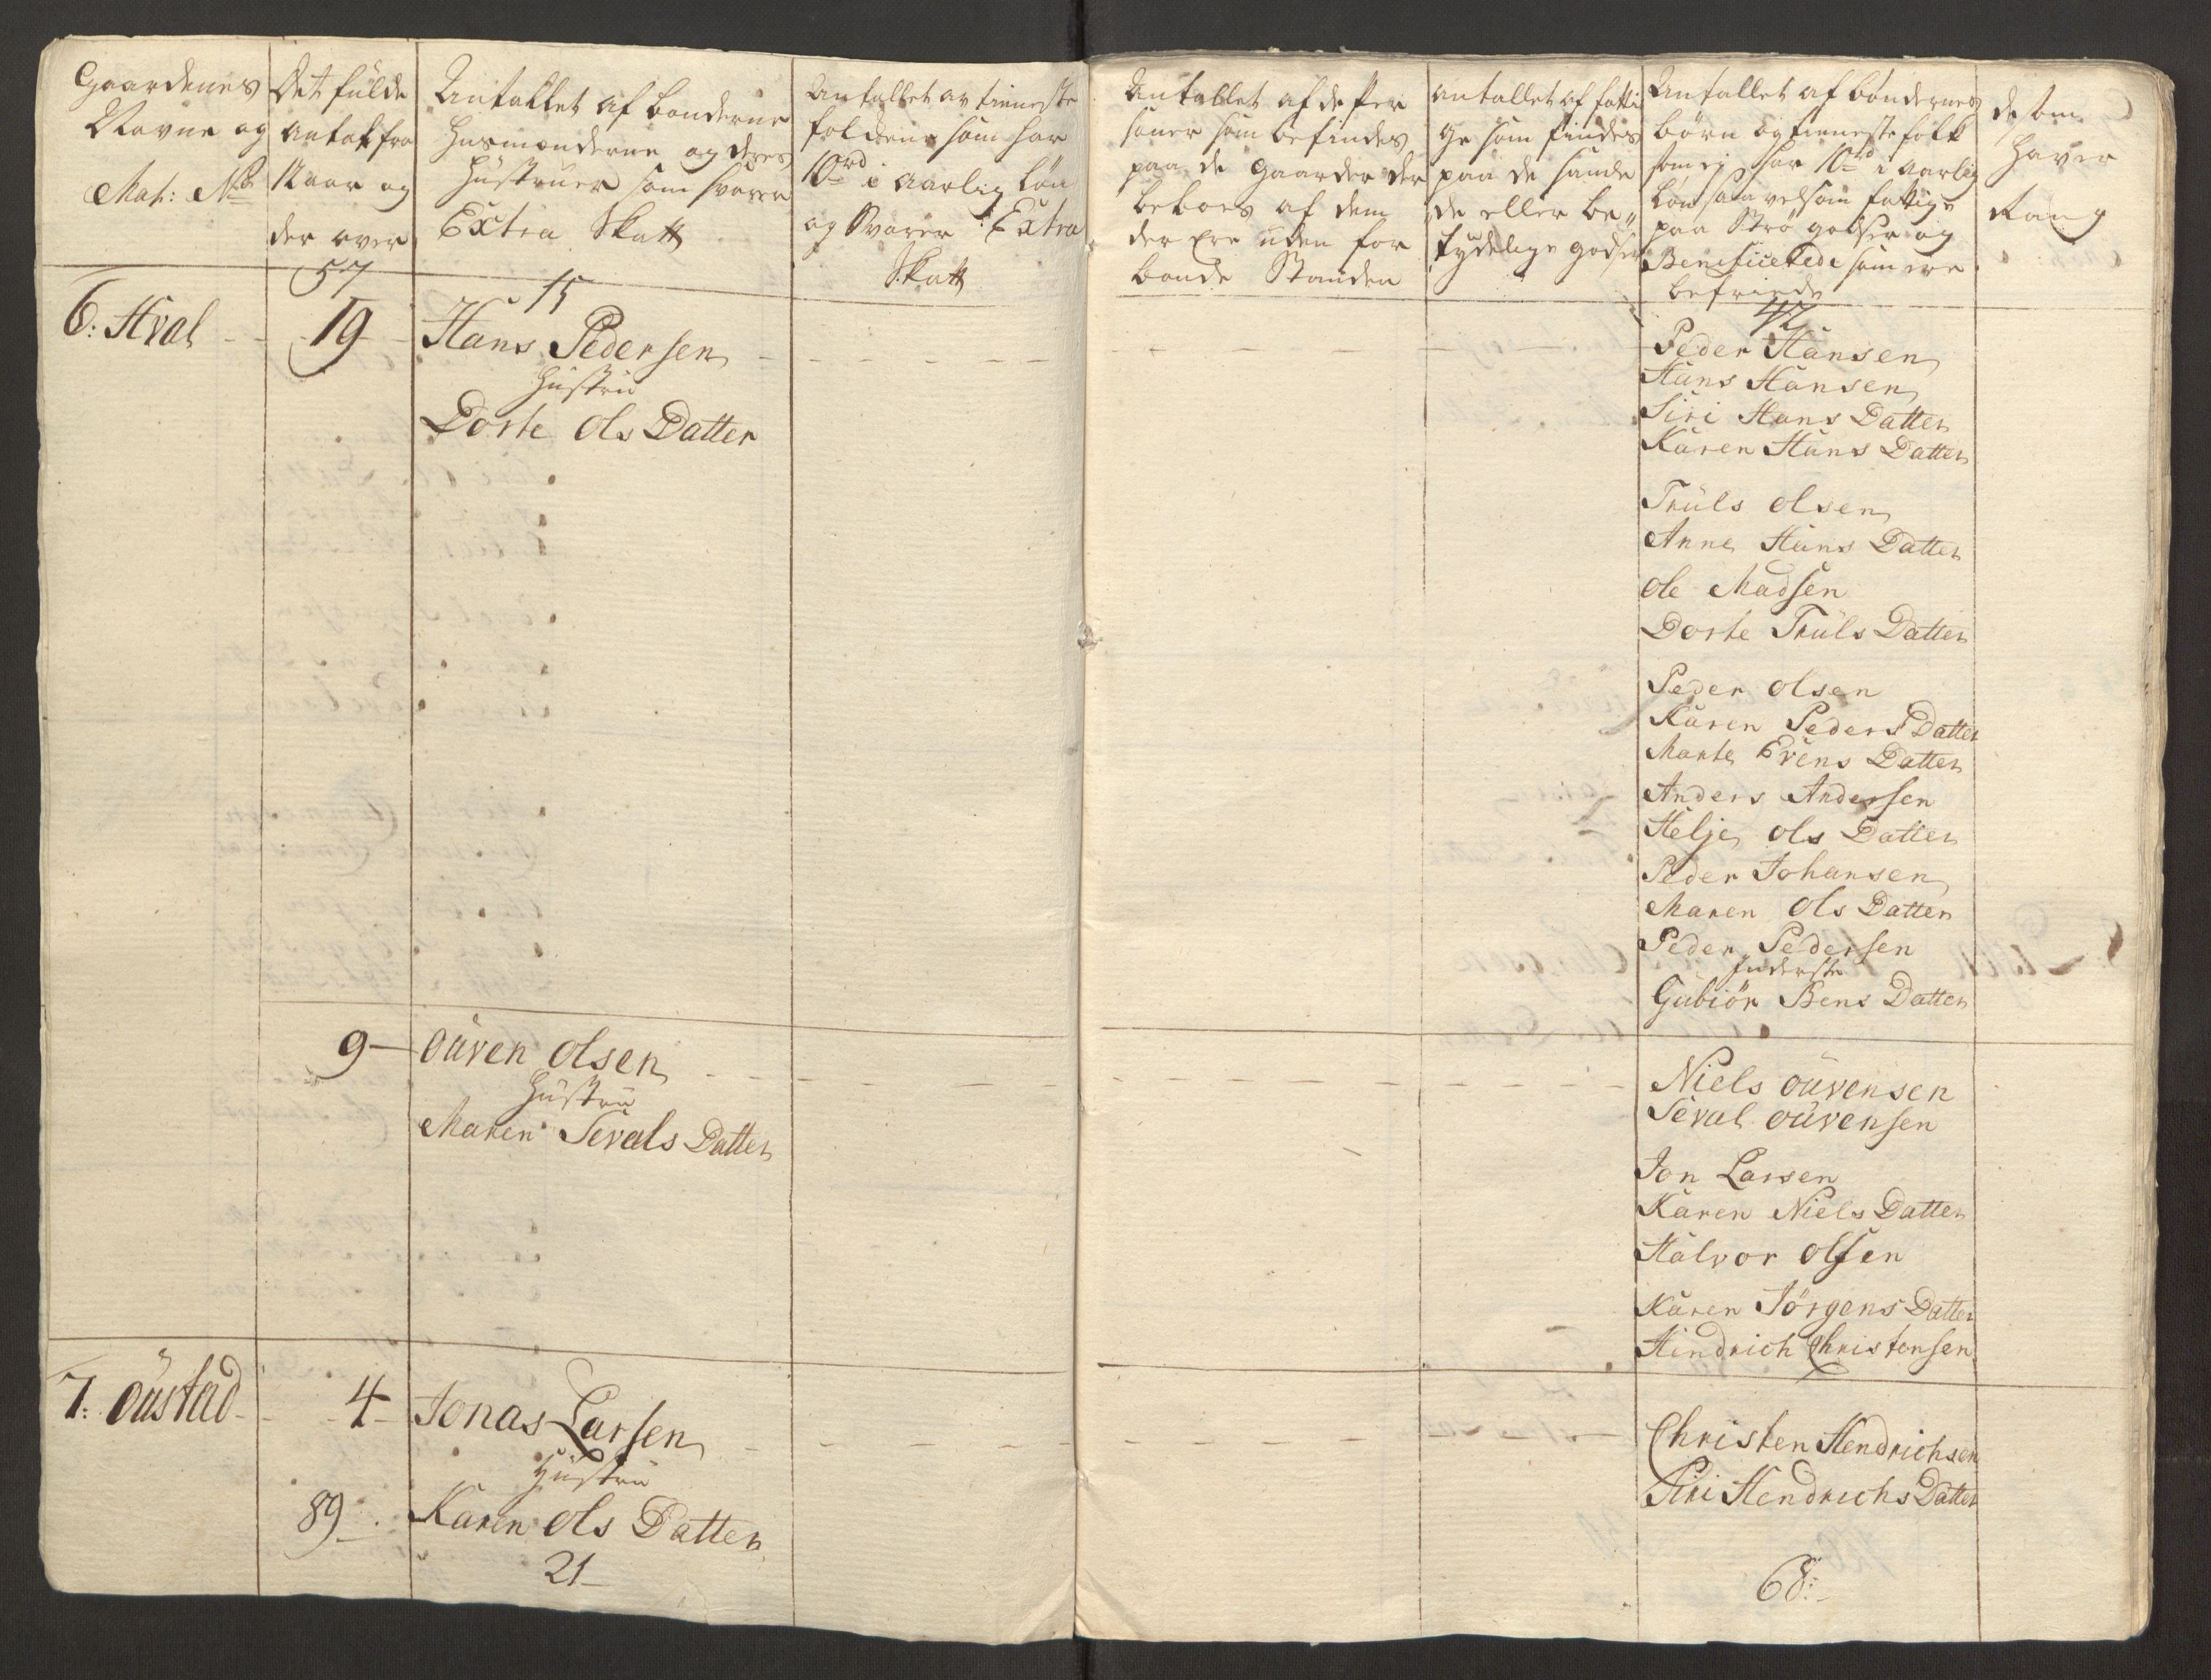 Gaardenes
Navne og
Mat: No
Det fulde
antal fra
12 aar og
der over
Antallet af bønderne
Husmænderne og deres
Hustruer som svarer
Extra Skatt
Antallet av tieneste
folckene som har
10rd i aarlig løn
og Svarer Extra
Skatt
Antallet af de Per
soner som befindes
paa de Gaarder der
beboes af dem
der ere uden for
bonde Standen
antallet af fatti
ge som findes
paa de
de eller be„
tydelige godser
Antallet af bøndernes
børn og tieneste folk
som ej har 10rd i aarlig
Løn saa velsom fattige
paa Strø godser og
Beneficerede som ere
befriede
de som
haver
Rang
57
15
42
6: Hval
19
Hans Pedersen
Hustru
Dorte Ols Datter
Peder Hansen
Hans Hansen
Siri Hans Datter
Karen Hans Datter
Truls Olsen
Anne Hans Datter
Ole Madsen
Dorte Truls Datter
Peder Olsen
Karen Peders Datter
Marte Evens Datter
Anders Andersen
Helje Ols Datter
Peder Johansen
Maren Ols Datter
Peder Pedersen
Inderste
Gubiör Bens Datter
9
Ouven Olsen
Hustru
Maren Sevals Datter
Niels Ouvensen
Seval Ouvensen
Jon Larsen
Karen Niels Datter
Halvor Olsen
Karen Jörgens Datter
Hindrich Christensen
7: Oustad
4
Jonas Larsen
Hustru
Karen Ols Datter
Christen Hendrichsen
Siri Hendrichs Datter
89
21
68: